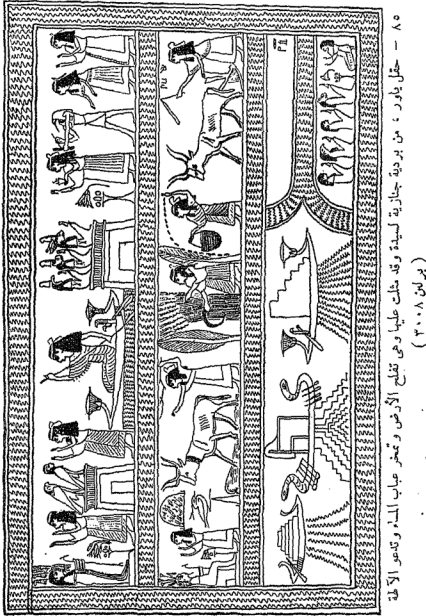 ٨٥ – حقل يارو : من بردية جنازية لسيدة وقد مثلت عليها وهى تفلح الأرض وتمخر عباب المياه وتدعو الآلهة
( برلين ٣٠٠٨ )